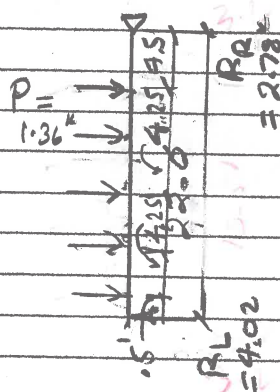 P =
1.36ᵏ
4.5
4.25
4.25
22-0
.5'
R_R
= 2.78ᵏ
R_L
= 4.02